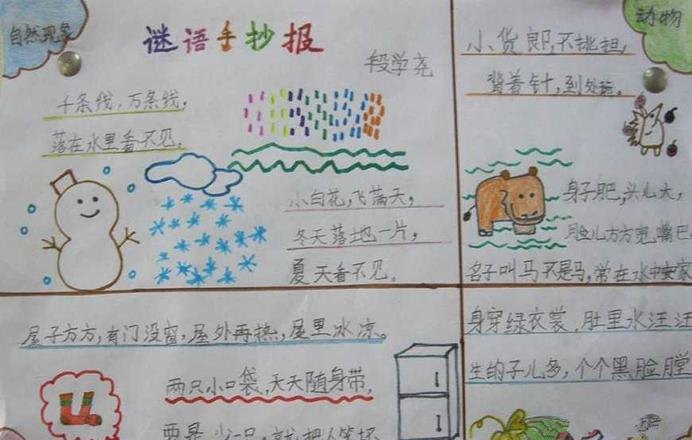 自然现象
谜语手抄报
段学尧
千条线，万条线，
落在水里看不见。
小白花，飞满天，
冬天落地一片，
夏天看不见。
动物
小货郎，不挑担，
背着针，到处窜。
身子肥，头儿大，
脸儿方方宽嘴巴
名子叫马不是马，常在水中安家
屋子方方，有门没窗，屋外再热，屋里冰凉。
两只小口袋，天天随身带，
要是少一只，就把人笑坏
身穿绿衣裳，肚里水汪汪
生的子儿多，个个黑脸膛